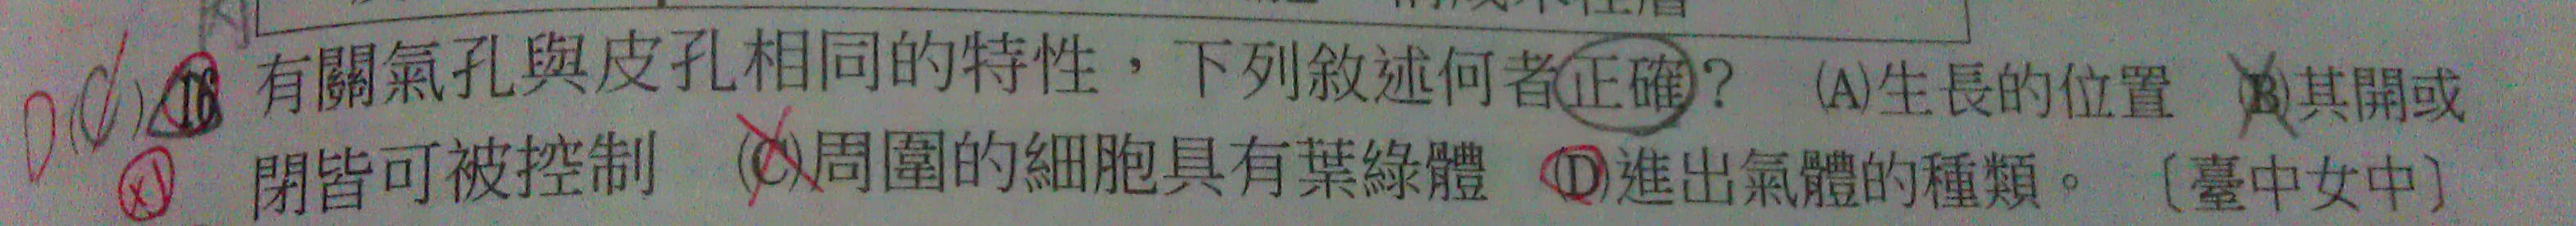 D(C)16 有關氣孔與皮孔相同的特性，下列敘述何者正確？ (A)生長的位置 (B)其開或
閉皆可被控制 (C)周圍的細胞具有葉綠體 (D)進出氣體的種類。〔臺中女中〕